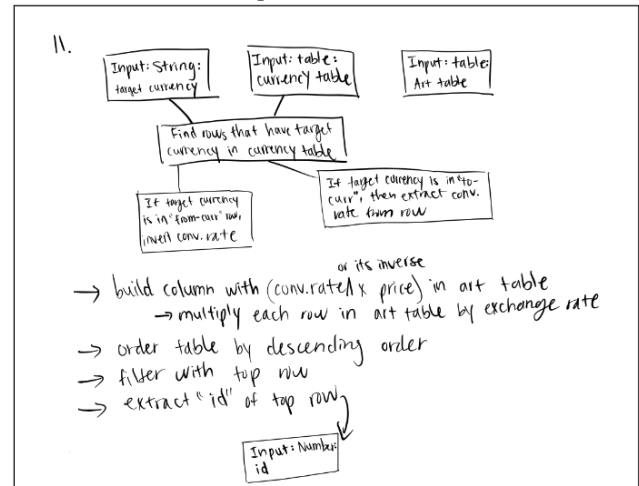 11.
Input: String:
target currency
Input: table:
currency table
Input: table:
Art table
Find rows that have target
currency in currency table
If target currency
is in "from-curr" row,
invert conv. rate
If target currency is in "to-
curr", then extract conv.
rate from row
or its inverse
→ build column with (conv.rate∧ x price) in art table
→ multiply each row in art table by exchange rate
→ order table by descending order
→ filter with top row
→ extract "id" of top row
Input: Number:
id